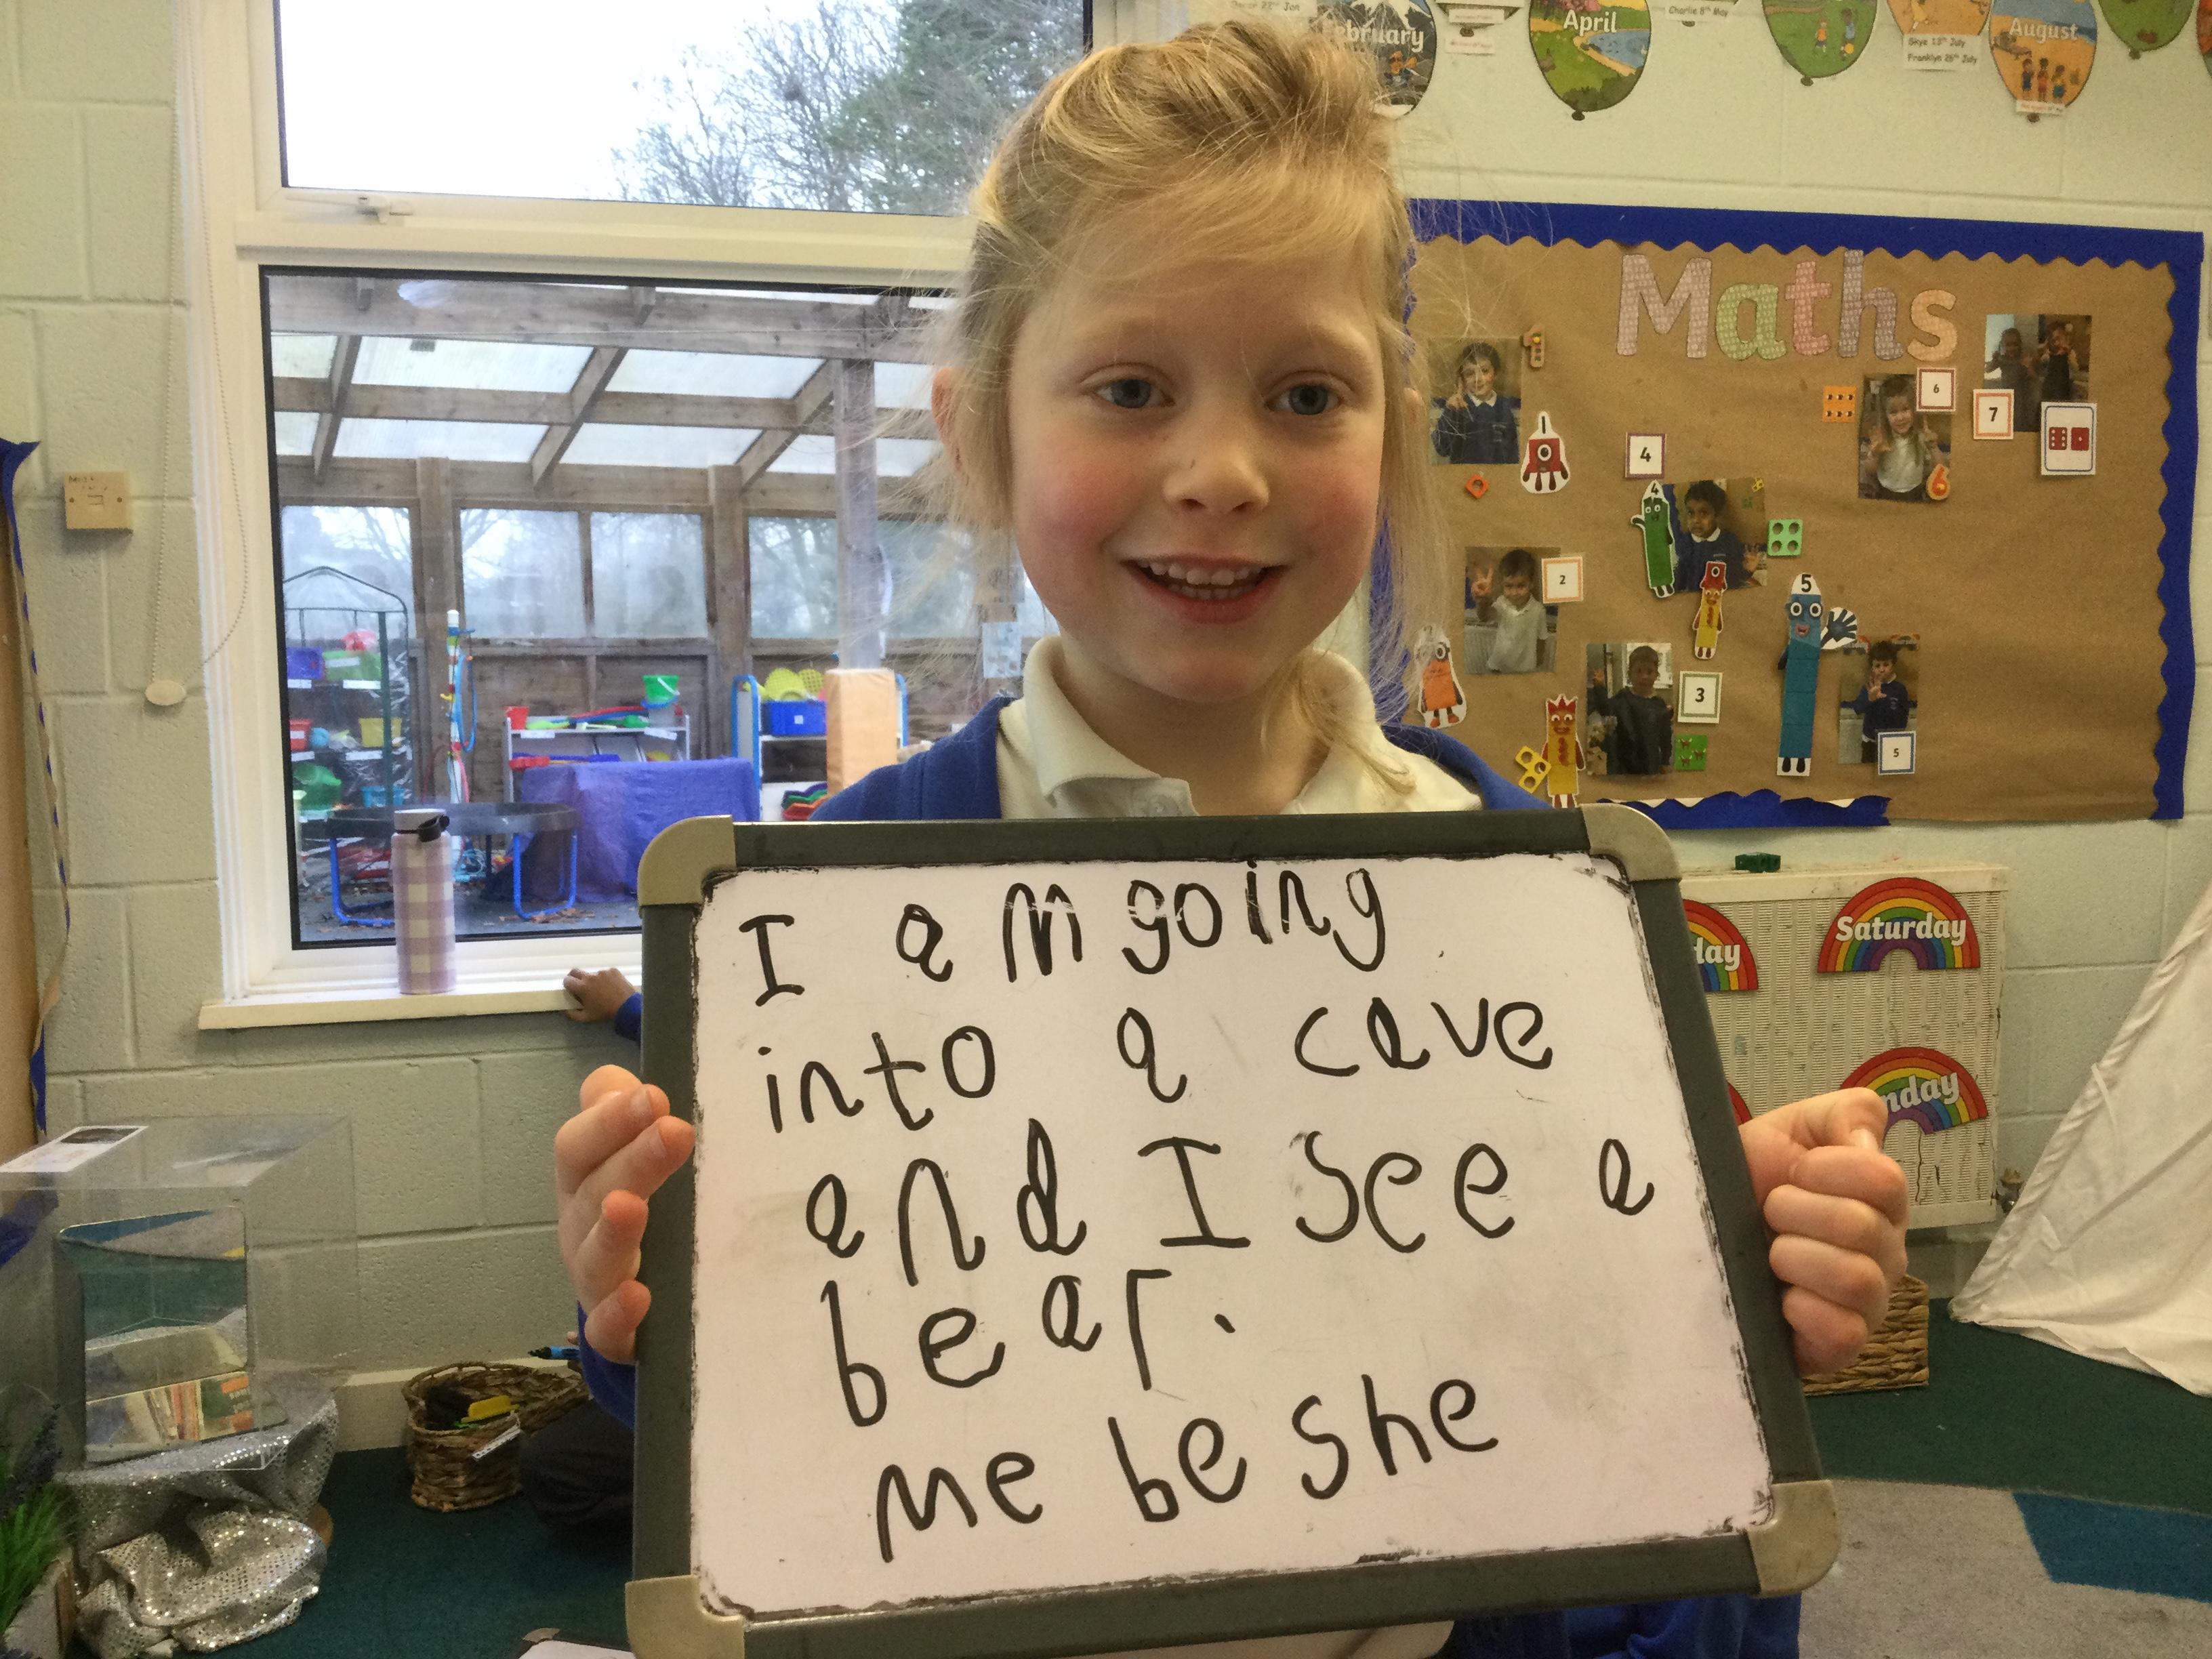 February
April
Charlie 8th May
Skye 13th July
Franklyn 26th July
August
Maths
1
6
7
4
4
5
2
3
5
Saturday
I am going
into a cave
and I see a
bear.
me be she